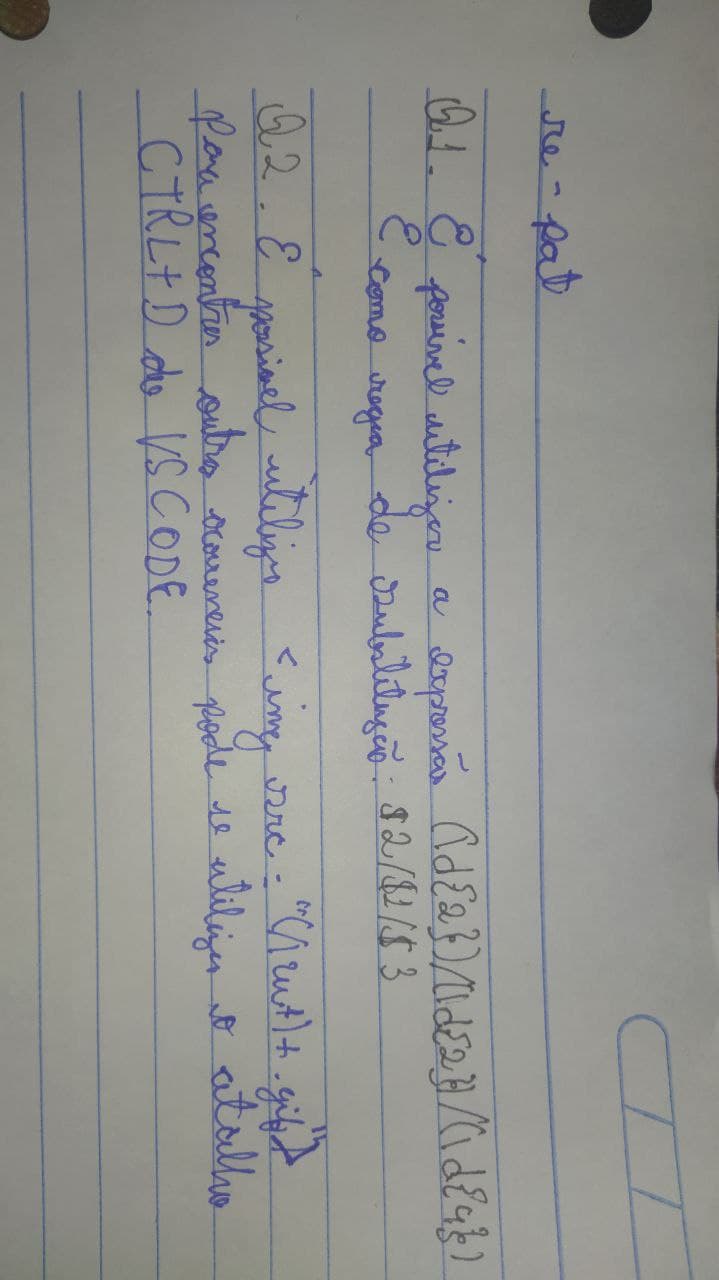 re-pat
Q1. É possível utilizar a expressão (\d{2})/(\d{2})/(\d{4})
E como regra de substituição: $2/$1/$3
Q2. É possivel utilizar <img src="(\w+)+.gif">
Para encontrar outras ocorrencias pode se utilizar o atalho
CTRL+D do VSCODE.